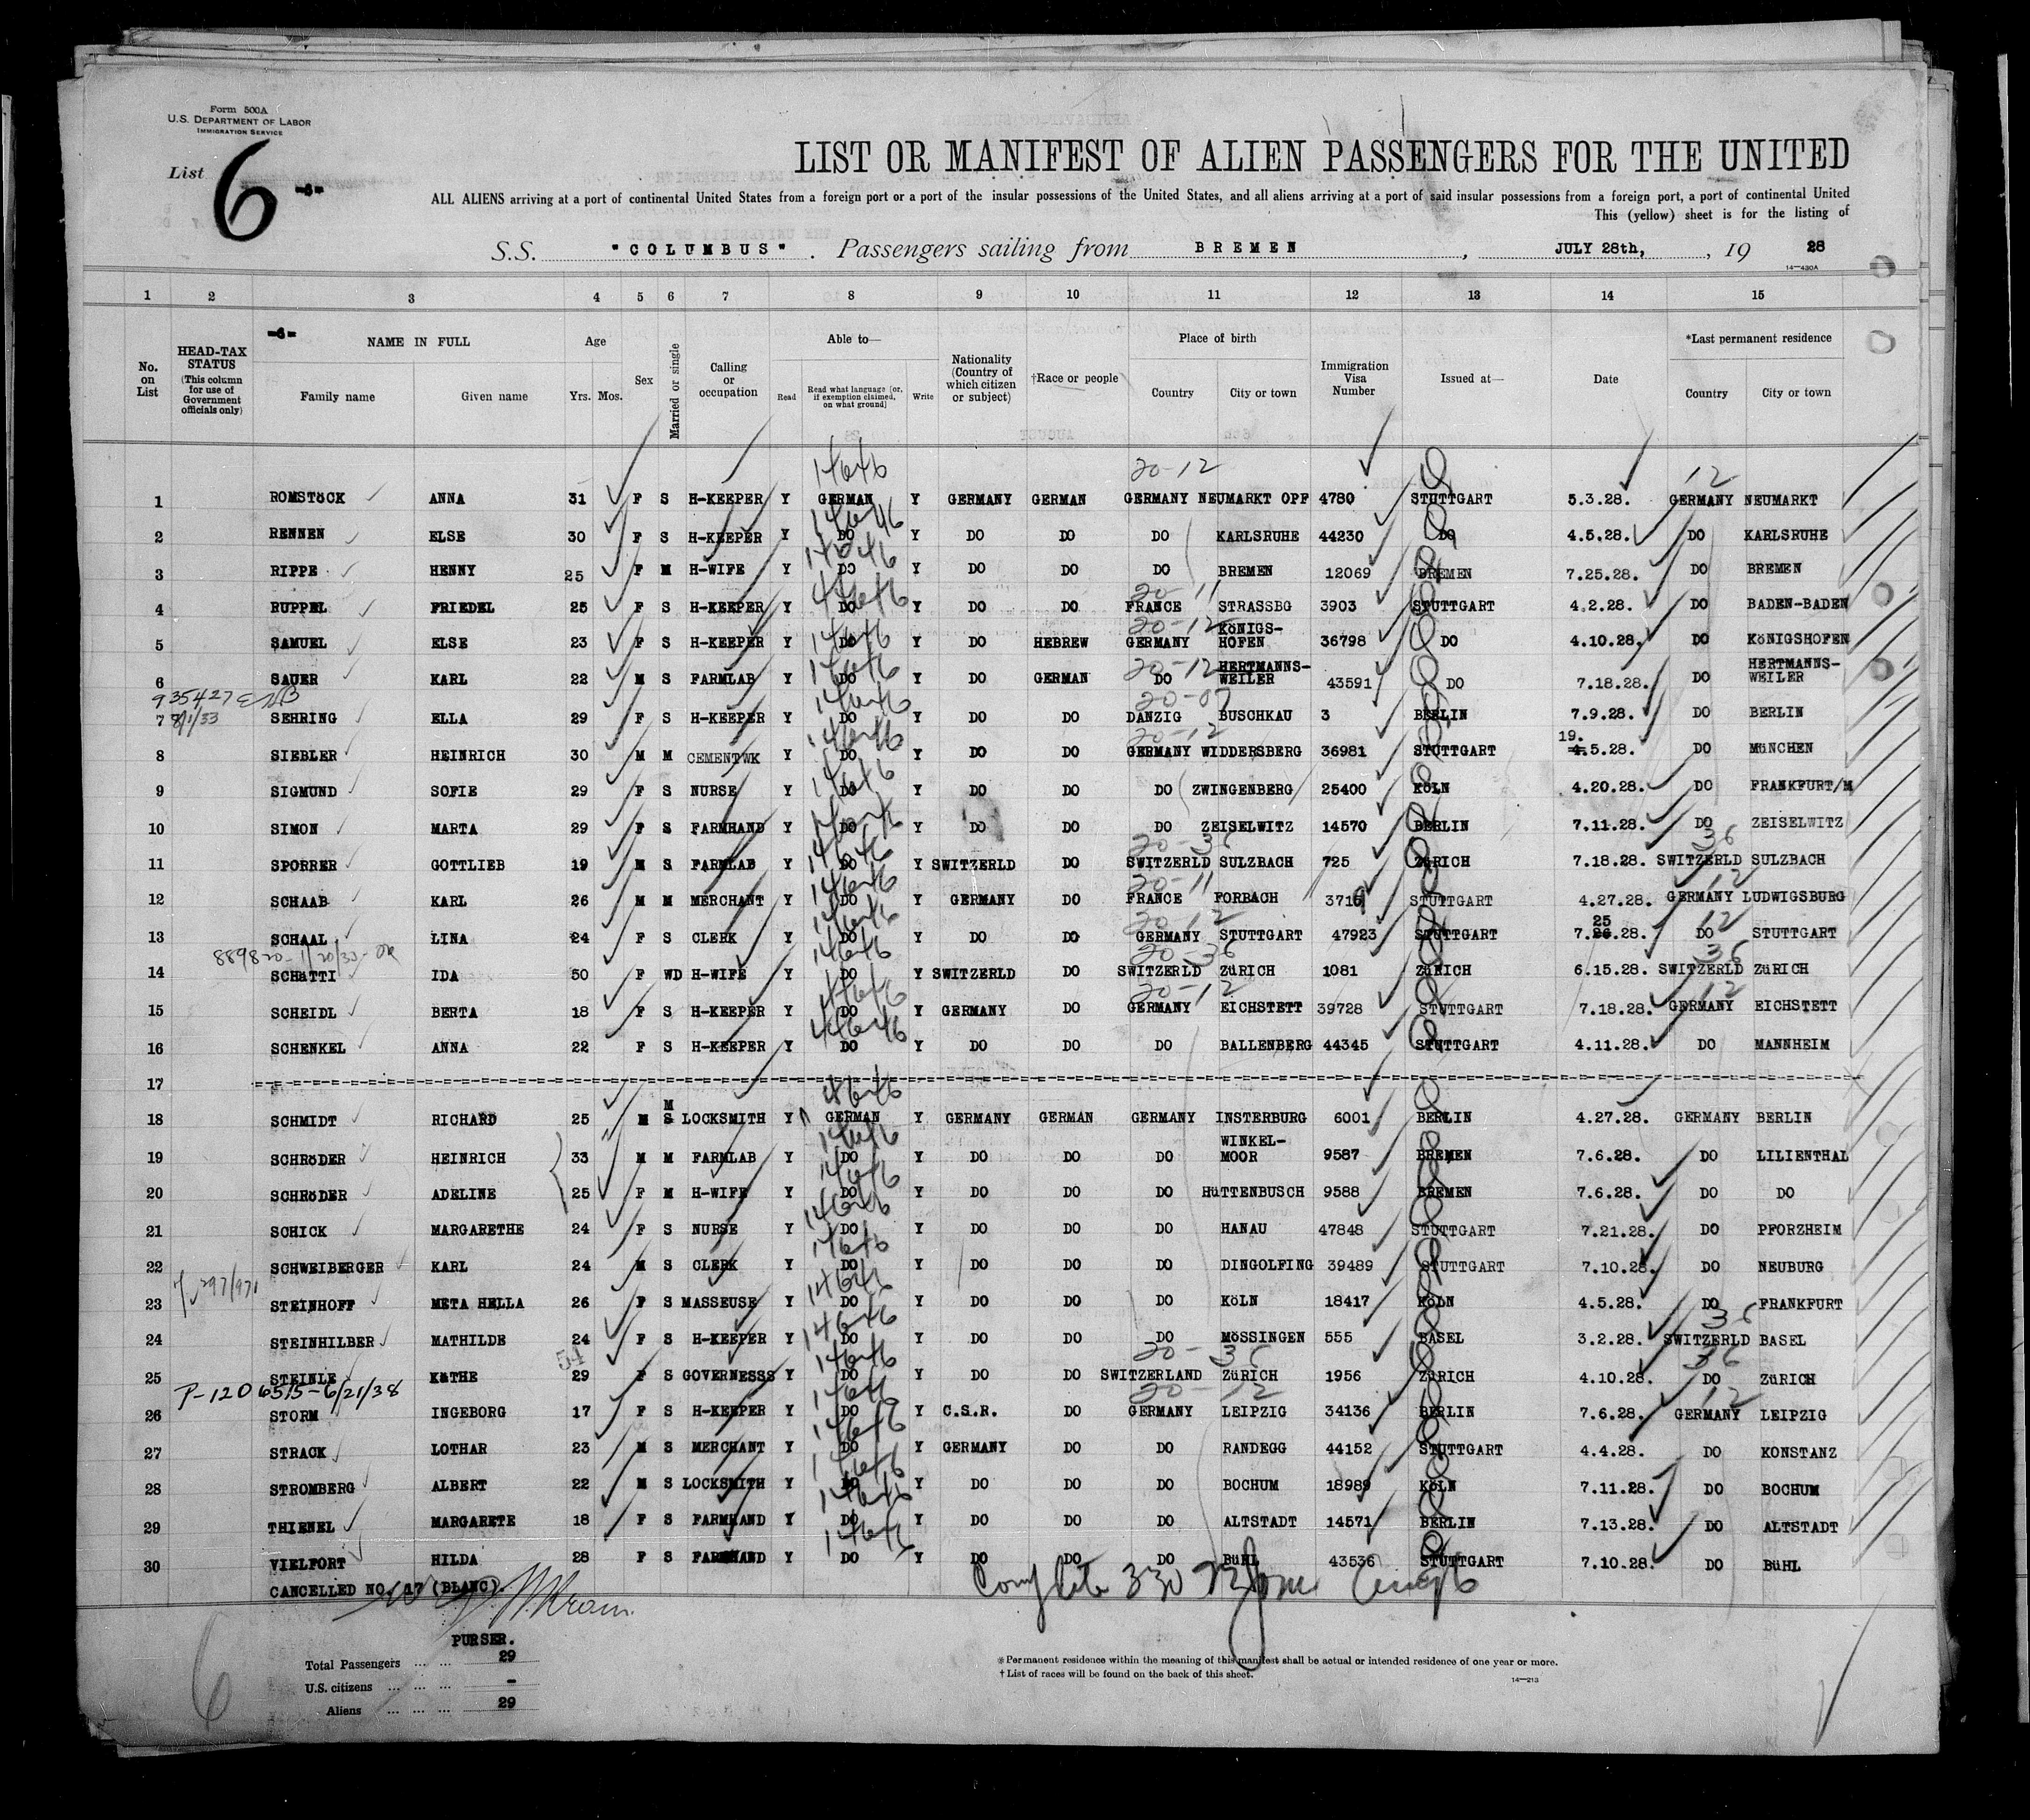 Form 500A
U.S. DEPARTMENT OF LABOR
IMMIGRATION SERVICE
List 6 -6-
LIST OR MANIFEST OF ALIEN PASSENGERS FOR THE UNITED
ALL ALIENS arriving at a port of continental United States from a foreign port or a port of the insular possessions of the United States, and all aliens arriving at a port of said insular possessions from a foreign port, a port of continental United
This (yellow) sheet is for the listing of
S.S. "COLUMBUS". Passengers sailing from BREMEN, JULY 28th, , 19 28
14—430A
1 2 3 4 5 6 7 8 9 10 11 12 13 14 15
No. on List HEAD-TAX STATUS (This column for use of Government officials only) -6- NAME IN FULL Family name Given name Age Yrs. Mos. Sex Married or single Calling or occupation Able to— Read Read what language [or, if exemption claimed, on what ground] Write Nationality (Country of which citizen or subject) †Race or people Place of birth Country City or town Immigration Visa Number Issued at— Date *Last permanent residence Country City or town
14646 20-12 12
1 ROMSTÖCK ANNA 31 F S H-KEEPER Y GERMAN Y GERMANY GERMAN GERMANY NEUMARKT OPF 4780 STUTTGART 5.3.28. GERMANY NEUMARKT
2 RENNEN ELSE 30 F S H-KEEPER Y DO Y DO DO DO KARLSRUHE 44230 DO 4.5.28. DO KARLSRUHE
3 RIPPE HENNY 25 F M H-WIFE Y DO Y DO DO DO BREMEN 12069 BREMEN 7.25.28. DO BREMEN
20-11
4 RUPPEL FRIEDEL 25 F S H-KEEPER Y DO Y DO DO FRANCE STRASSBG 3903 STUTTGART 4.2.28. DO BADEN-BADEN
20-12
5 SAMUEL ELSE 23 F S H-KEEPER Y DO Y DO HEBREW GERMANY KÖNIGS-HOFEN 36798 DO 4.10.28. DO KÖNIGSHOFEN
20-12
6 SAUER KARL 22 M S FARMLAB Y DO Y DO GERMAN DO HERTMANNS-WEILER 43591 DO 7.18.28. DO HERTMANNS-WEILER
935427 20-07
7 8/1/33 SEHRING ELLA 29 F S H-KEEPER Y DO Y DO DO DANZIG BUSCHKAU 3 BERLIN 7.9.28. DO BERLIN
20-12 19.
8 SIEBLER HEINRICH 30 M M CEMENTWK Y DO Y DO DO GERMANY WIDDERSBERG 36981 STUTTGART 4.5.28. DO MÜNCHEN
9 SIGMUND SOFIE 29 F S NURSE Y DO Y DO DO DO ZWINGENBERG 25400 KÖLN 4.20.28. DO FRANKFURT/M
10 SIMON MARTA 29 F S FARMHAND Y DO Y DO DO DO ZEISELWITZ 14570 BERLIN 7.11.28. DO ZEISELWITZ
20-36 36
11 SPORRER GOTTLIEB 19 M S FARMLAB Y DO Y SWITZERLD DO SWITZERLD SULZBACH 725 ZÜRICH 7.18.28. SWITZERLD SULZBACH
20-11 12
12 SCHAAB KARL 26 M M MERCHANT Y DO Y GERMANY DO FRANCE FORBACH 3719 STUTTGART 4.27.28. GERMANY LUDWIGSBURG
20-12 25 12
13 SCHAAL LINA 24 F S CLERK Y DO Y DO DO GERMANY STUTTGART 47923 STUTTGART 7.26.28. DO STUTTGART
20-36 36
14 SCHÄTTI IDA 50 F WD H-WIFE Y DO Y SWITZERLD DO SWITZERLD ZÜRICH 1081 ZÜRICH 6.15.28. SWITZERLD ZÜRICH
20-12 12
15 SCHEIDL BERTA 18 F S H-KEEPER Y DO Y GERMANY DO GERMANY EICHSTETT 39728 STUTTGART 7.18.28. GERMANY EICHSTETT
16 SCHENKEL ANNA 22 F S H-KEEPER Y DO Y DO DO DO BALLENBERG 44345 STUTTGART 4.11.28. DO MANNHEIM
17
18 SCHMIDT RICHARD 25 M M S LOCKSMITH Y GERMAN Y GERMANY GERMAN GERMANY INSTERBURG 6001 BERLIN 4.27.28. GERMANY BERLIN
19 SCHRÖDER HEINRICH 33 M M FARMLAB Y DO Y DO DO DO WINKEL-MOOR 9587 BREMEN 7.6.28. DO LILIENTHAL
20 SCHRÖDER ADELINE 25 F M H-WIFE Y DO Y DO DO DO HÜTTENBUSCH 9588 BREMEN 7.6.28. DO DO
21 SCHICK MARGARETHE 24 F S NURSE Y DO Y DO DO DO HANAU 47848 STUTTGART 7.21.28. DO PFORZHEIM
22 SCHWEIBERGER KARL 24 M S CLERK Y DO Y DO DO DO DINGOLFING 39489 STUTTGART 7.10.28. DO NEUBURG
23 STEINHOFF META HELLA 26 F S MASSEUSE Y DO Y DO DO DO KÖLN 18417 KÖLN 4.5.28. DO FRANKFURT
36
24 STEINHILBER MATHILDE 24 F S H-KEEPER Y DO Y DO DO DO MÖSSINGEN 555 BASEL 3.2.28. SWITZERLD BASEL
54 20-36 36
25 STEINLE KÄTHE 29 F S GOVERNESSS Y DO Y DO DO SWITZERLAND ZÜRICH 1956 ZÜRICH 4.10.28. DO ZÜRICH
P-1206515-6/21/38 20-12 12
26 STORM INGEBORG 17 F S H-KEEPER Y DO Y C.S.R. DO GERMANY LEIPZIG 34136 BERLIN 7.6.28. GERMANY LEIPZIG
27 STRACK LOTHAR 23 M S MERCHANT Y DO Y GERMANY DO DO RANDEGG 44152 STUTTGART 4.4.28. DO KONSTANZ
28 STROMBERG ALBERT 22 M S LOCKSMITH Y DO Y DO DO DO BOCHUM 18989 KÖLN 7.11.28. DO BOCHUM
29 THIENEL MARGARETE 18 F S FARMHAND Y DO Y DO DO DO ALTSTADT 14571 BERLIN 7.13.28. DO ALTSTADT
30 VIELFORT HILDA 28 F S FARMHAND Y DO Y DO DO DO BÜHL 43536 STUTTGART 7.10.28. DO BÜHL
CANCELLED NO. 17 (BLANC).
Complete 330
PURSER.
Total Passengers 29
U.S. citizens -
Aliens 29
6
*Permanent residence within the meaning of this manifest shall be actual or intended residence of one year or more.
†List of races will be found on the back of this sheet.
14—213